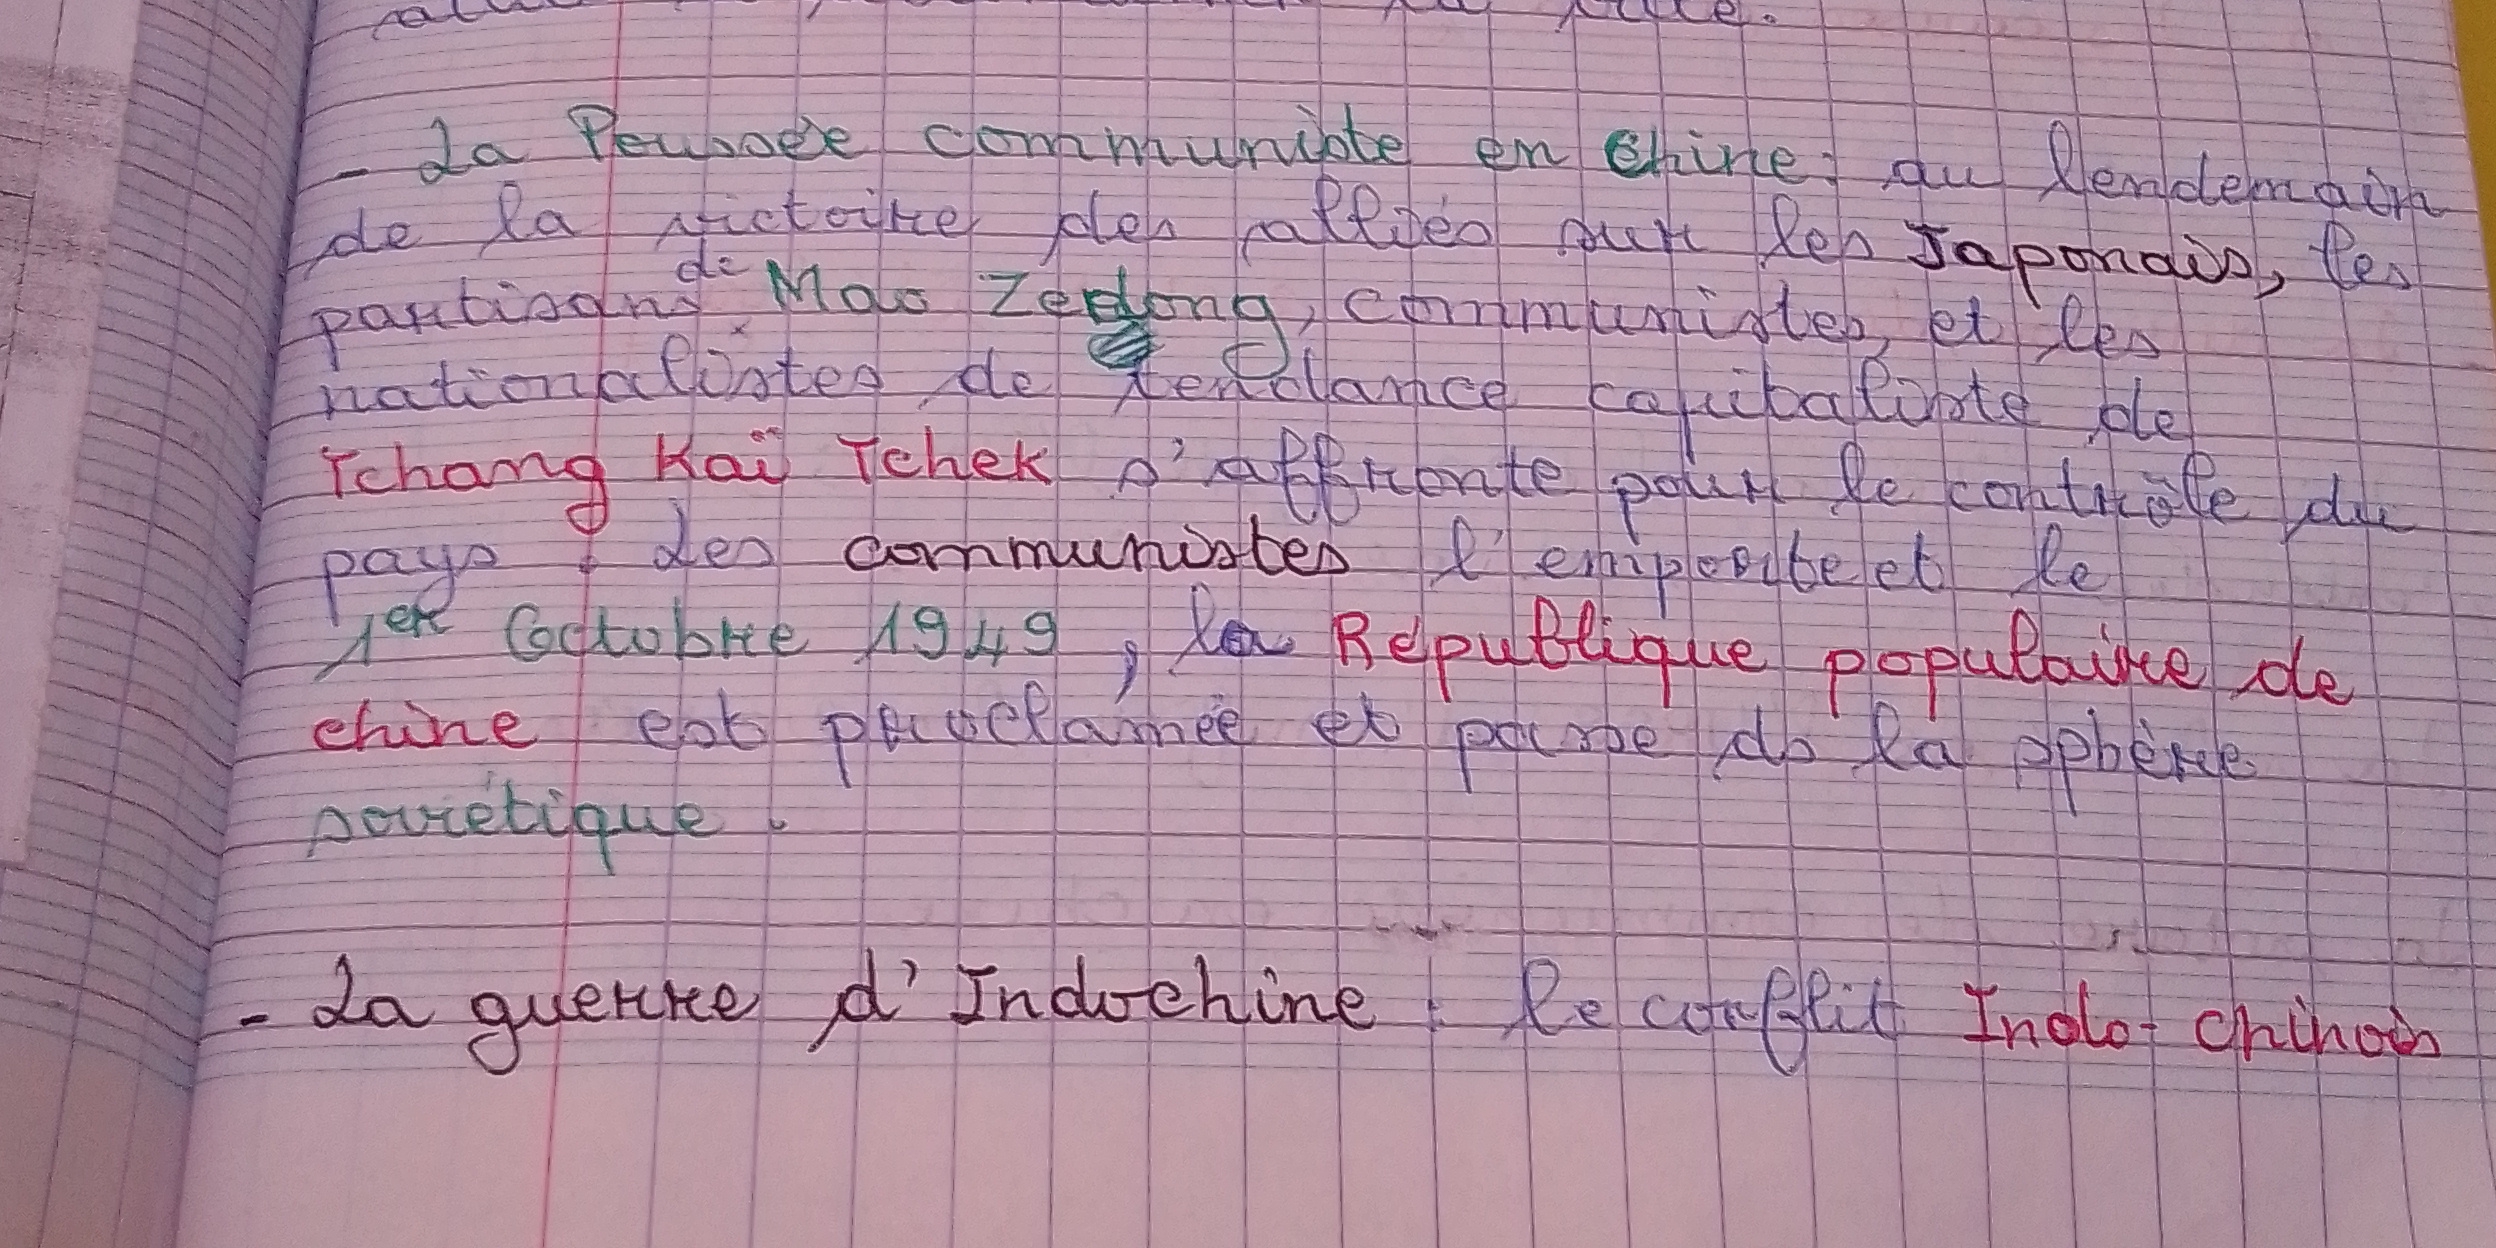 - La Poussée communiste en Chine : au lendemain
de la victoire des alliés sur les Japonais, les
partisans de Mao Zedong, communistes, et les
nationalistes de tendance capitaliste de
Tchang Kaï Tchek s'affronte pour le contrôle du
pays : Les communistes l'emporte et le
1er Octobre 1949, la République populaire de
chine est proclamée et passe ds la sphère
soviétique.
- La guerre d'Indochine : le conflit Indo-chinois